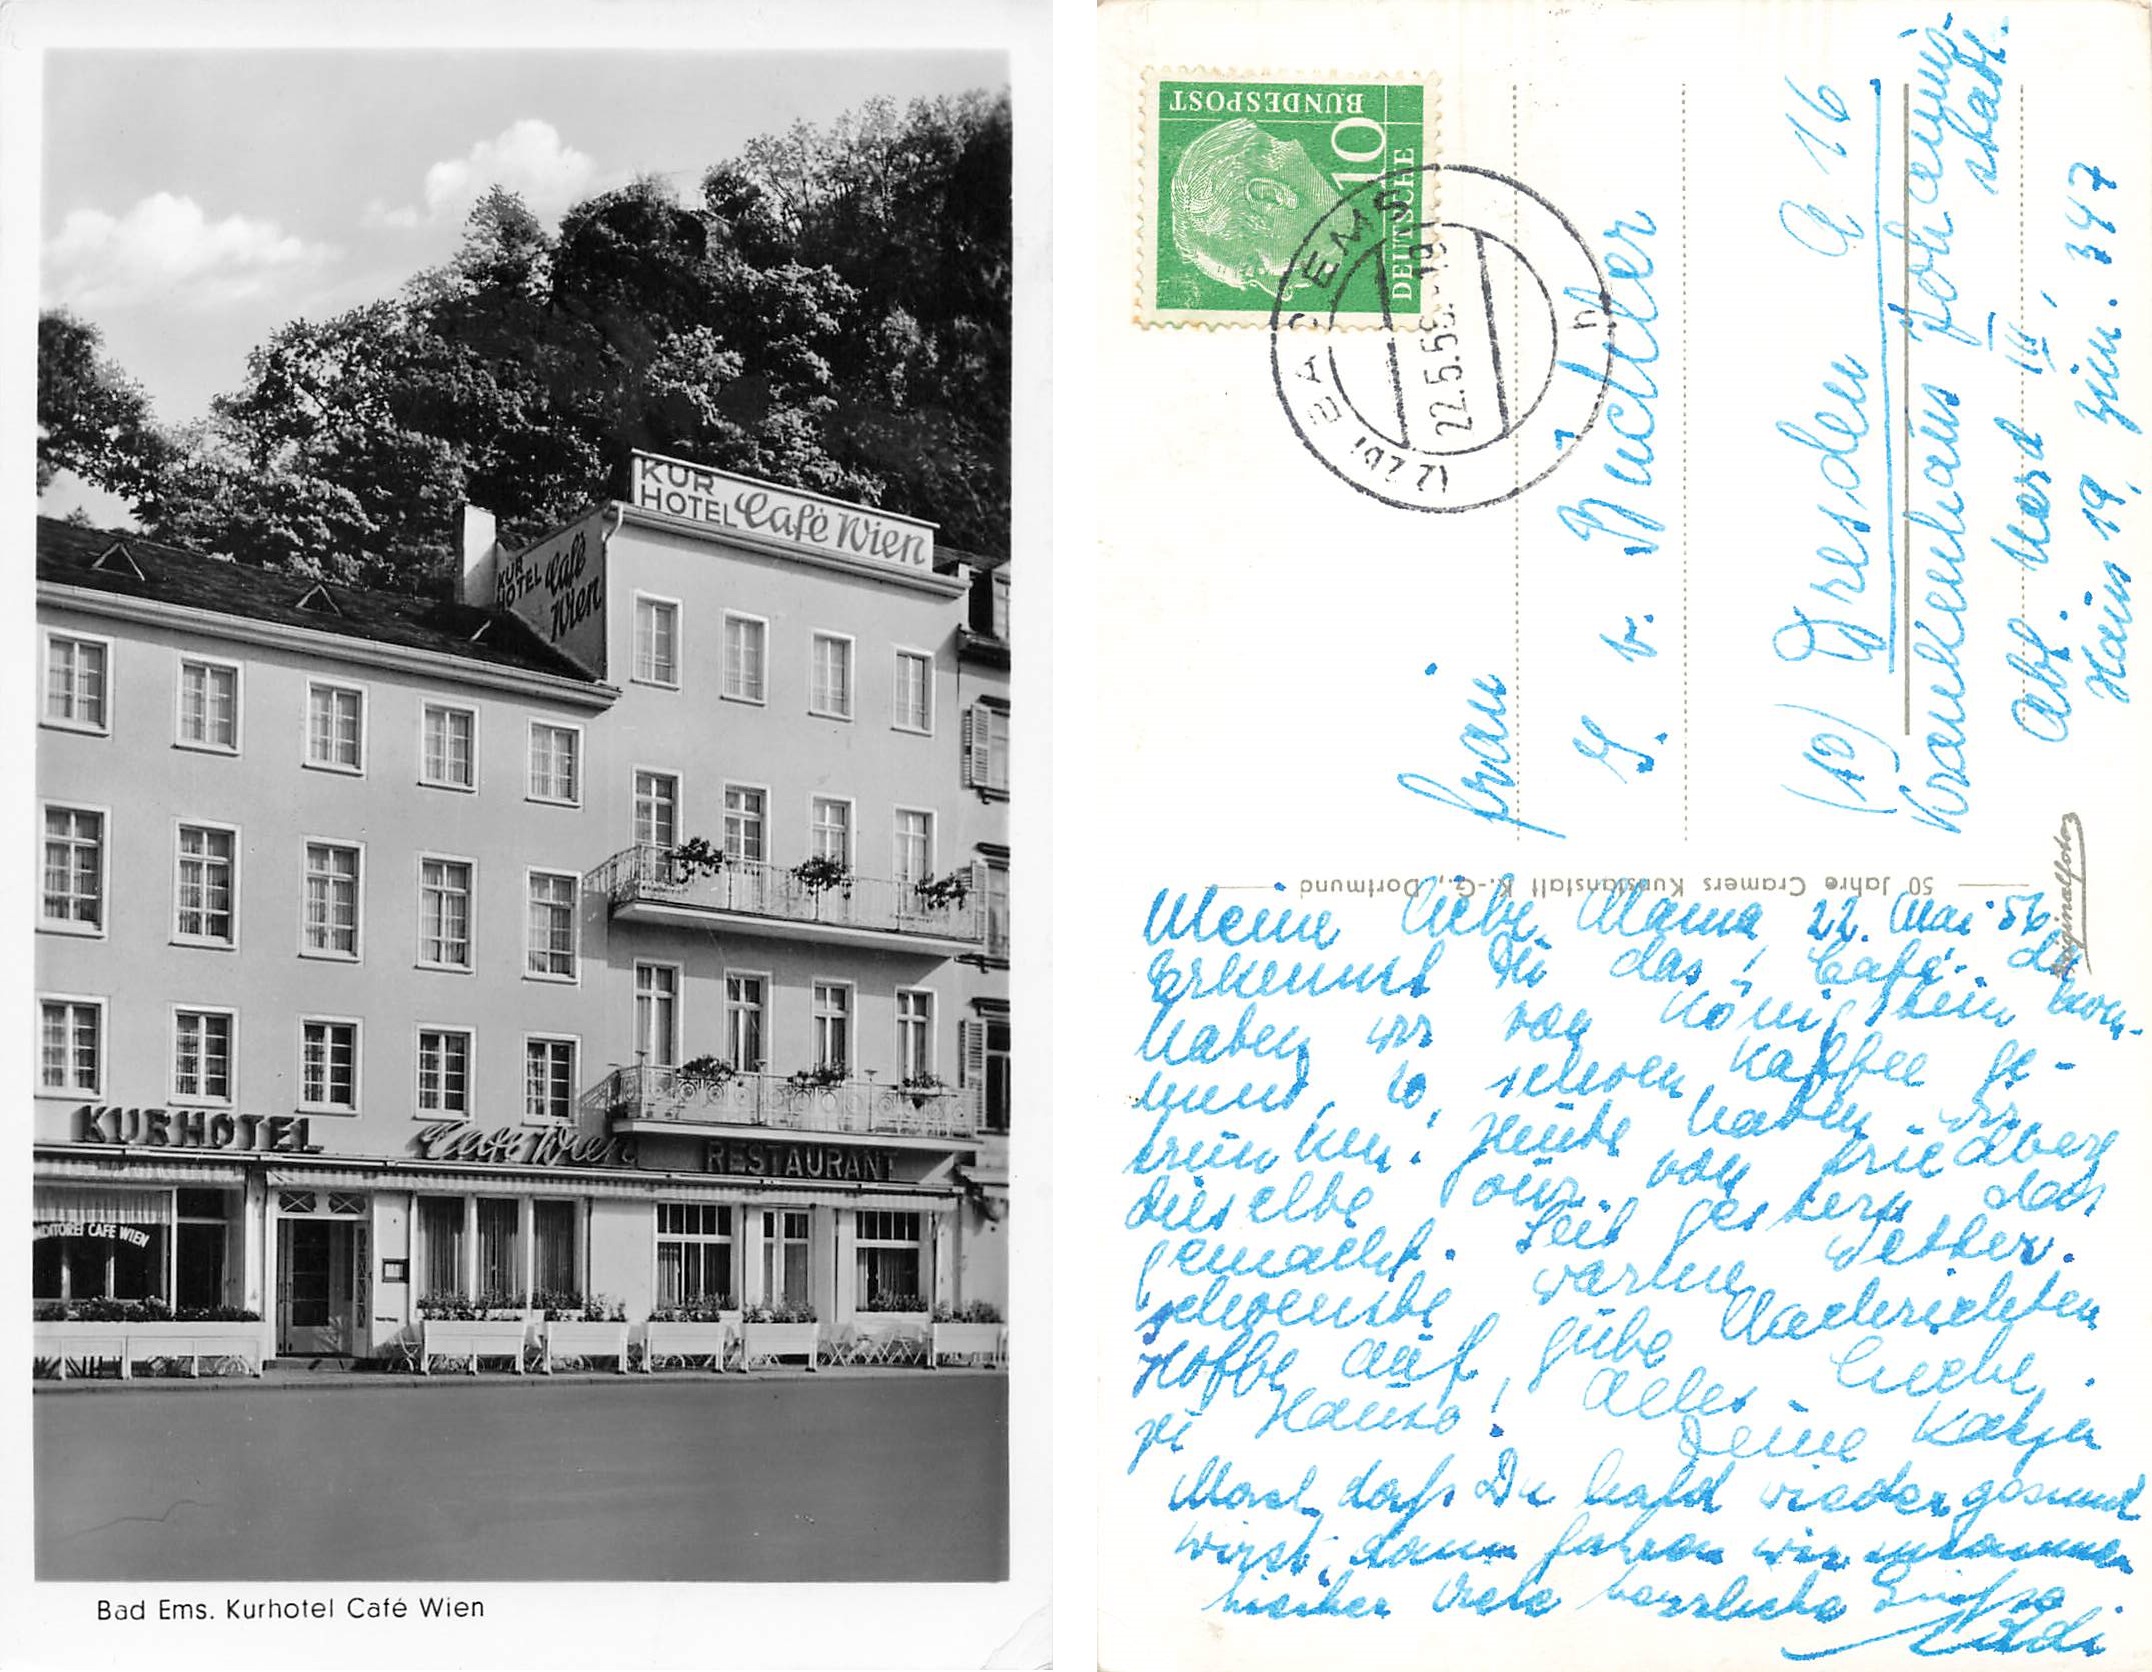 KUR
HOTEL Café Wien
KUR
HOTEL Café
Wien
KURHOTEL Café Wien RESTAURANT
NDITOREI CAFE WIEN
Bad Ems. Kurhotel Café Wien
DEUTSCHE
BUNDESPOST
10
BAD EMS
22.5.56.-19
(22b)
Frau
G. v. Buchter
(10) Dresden A 16
Krankenhaus Johann-
stadt.
Abt. Nord III,
Haus 19, Zim. 347
50 Jahre Cramers Kunstanstalt K.-G., Dortmund
Originalfoto
Meine liebe Mama, 22. Mai 56
Erkennst Du das Café, da
haben wir von Königstein kom-
mend, so schoen Kaffee ge-
trunken! Heute haben wir
dieselbe Tour von Friedberg
gemacht. Seit gestern das
schoenste warme Wetter.
Hoffe auf gute Nachrichten
zu Hause! Alles Liebe.
Deine Katja
Mach, daß Du bald wieder gesund
wirst, dann fahren wir zusammen
hierher. Viele herzliche Grüße.